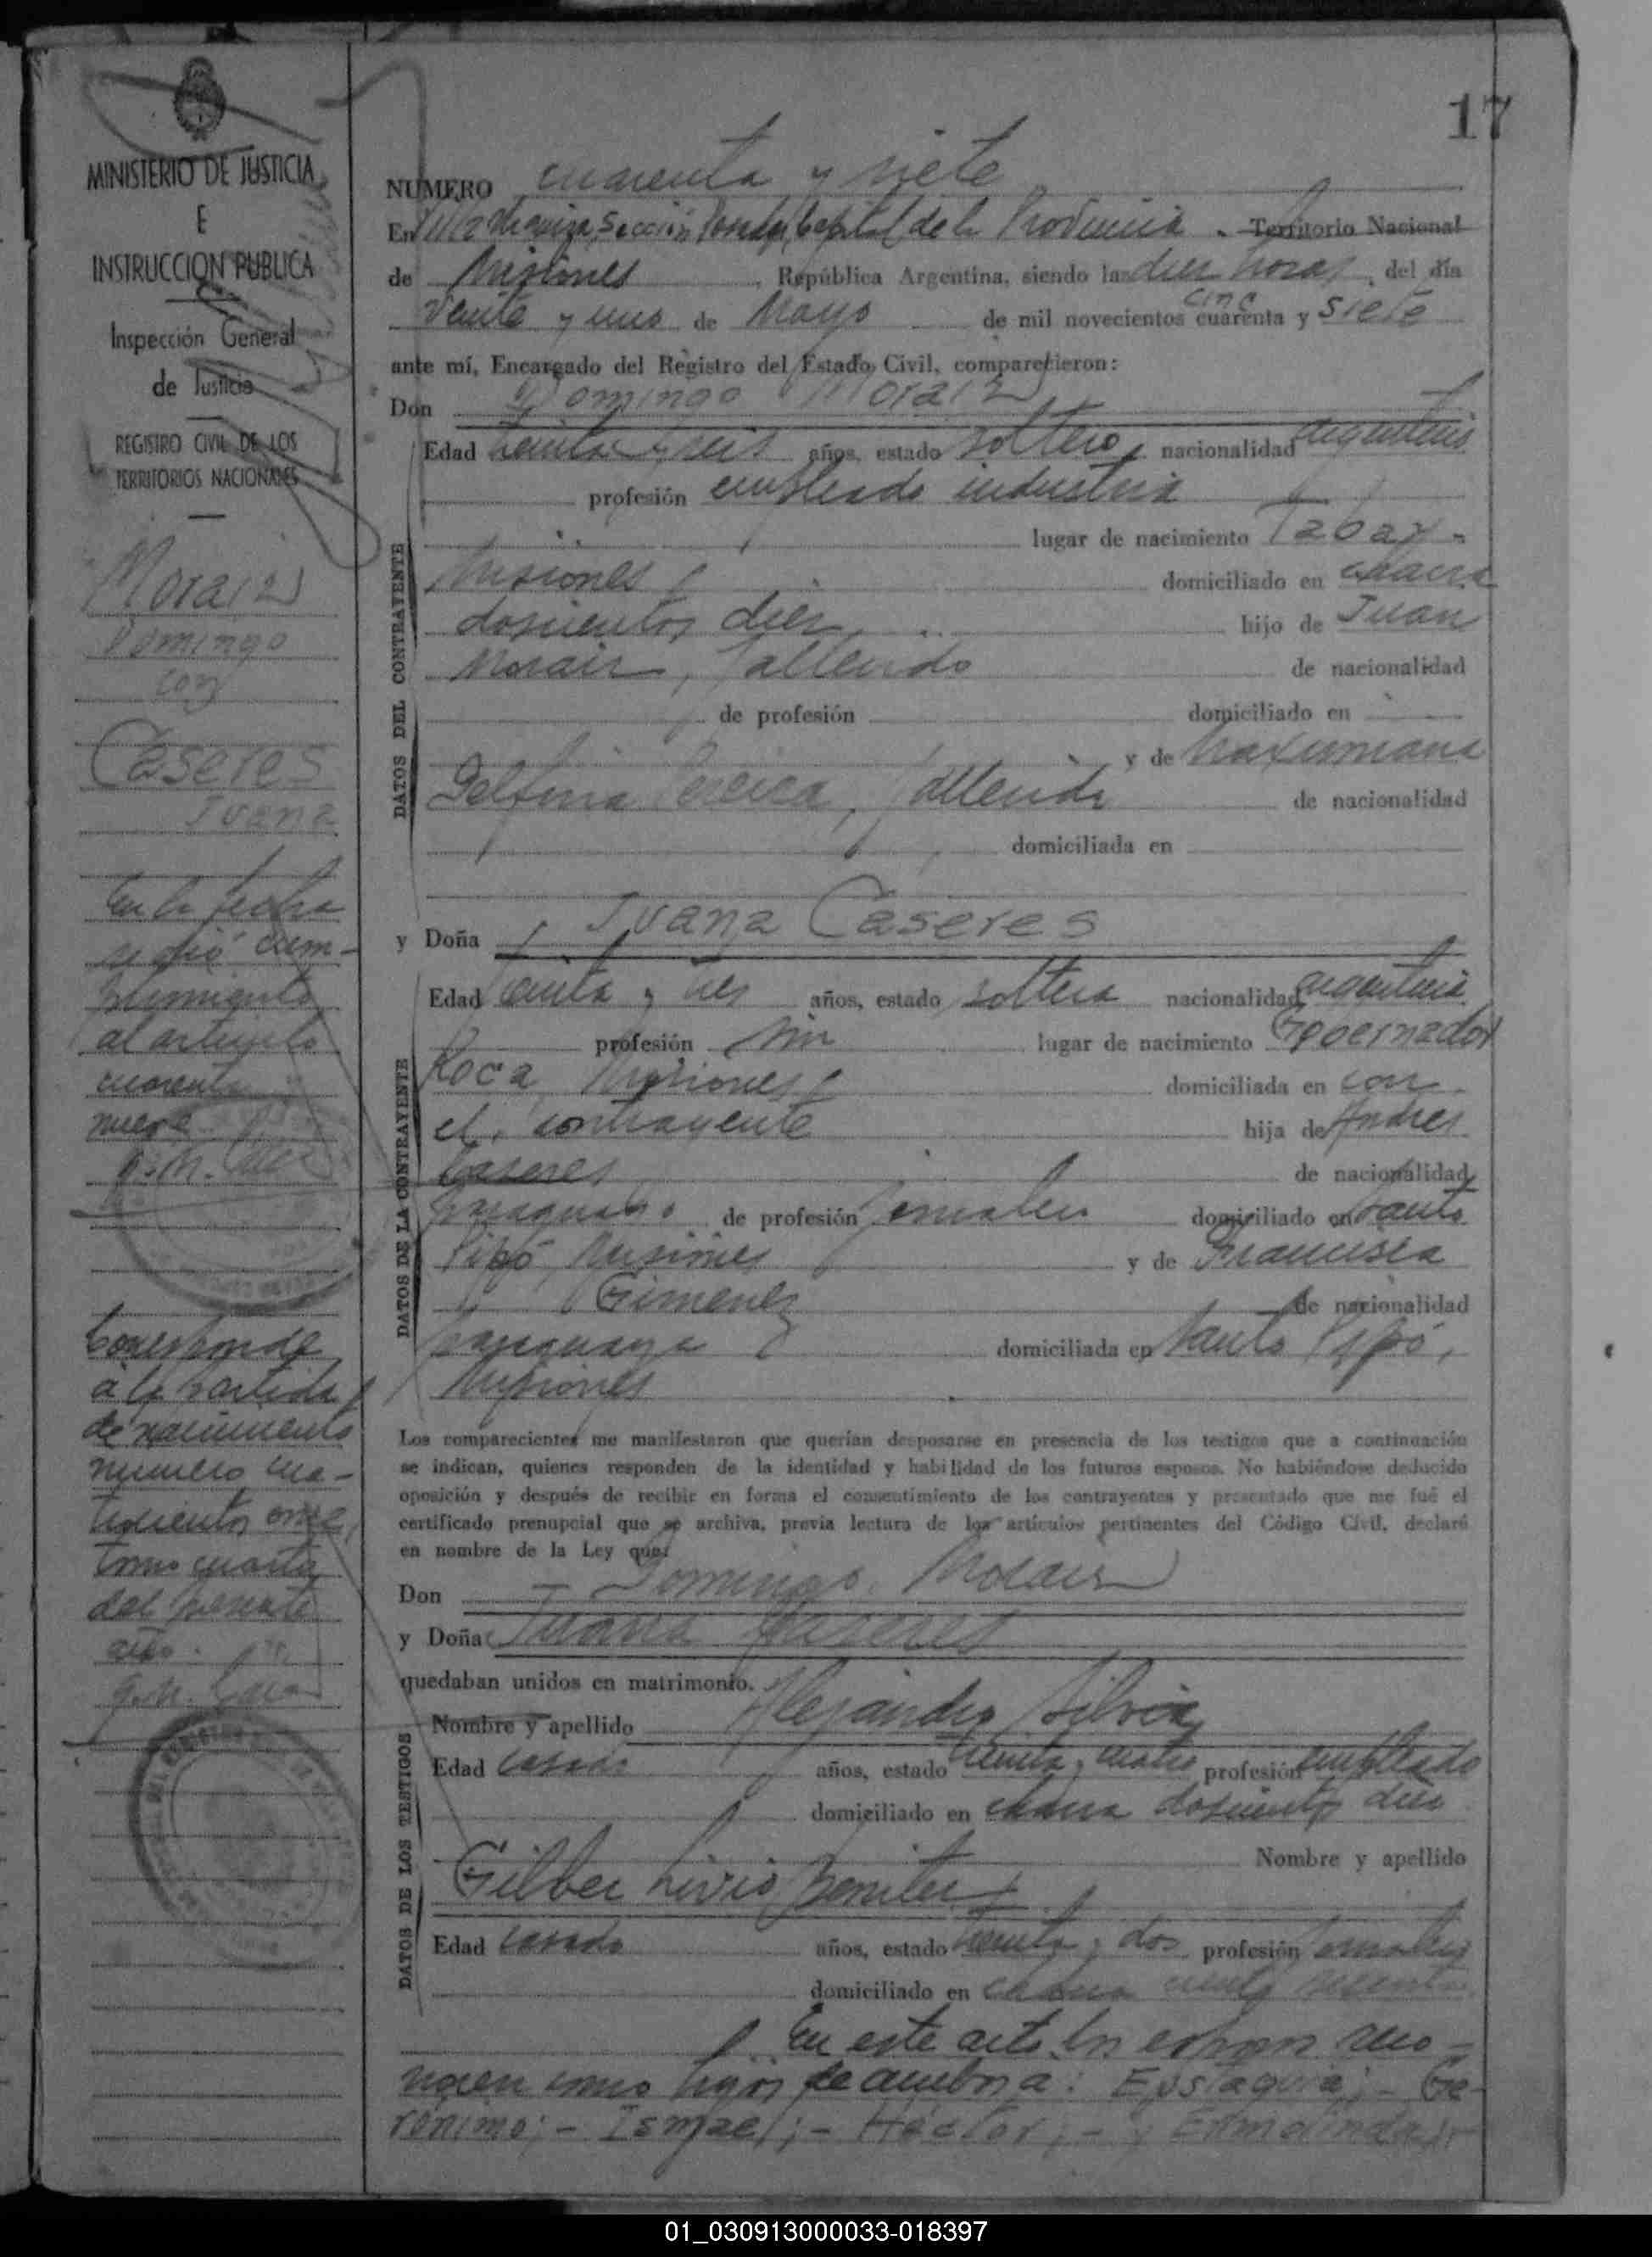 17
MINISTERIO DE JUSTICIA
E
INSTRUCCION PUBLICA
Inspección General
de Justicia
REGISTRO CIVIL DE LOS
TERRITORIOS NACIONALES
Moraiz
Domingo
con
Caseres
Juana
En la fecha
se dió cum-
plimiento
al artículo
cuarenta
nueve
Corresponde
a la partida
de nacimiento
número cua-
trocientos once,
tomo cuarto
del presente
año.
NUMERO cuarenta y siete
En Villa Sección Capital de la Provincia . Territorio Nacional
de Misiones , República Argentina, siendo las diez horas , del día
veinte y uno de Mayo de mil novecientos cuarenta cinc y siete
ante mí, Encargado del Registro del Estado Civil, comparecieron:
Don Domingo Moraiz
Edad treinta y seis años, estado soltero, nacionalidad argentino
profesión empleado industria
lugar de nacimiento Tabay -
Misiones domiciliado en chacra
doscientos diez hijo de Juan
Moraiz, fallecido de nacionalidad
de profesión domiciliado en
y de Maximiana
Delfina Pereira, fallecida de nacionalidad
domiciliada en
DATOS DEL CONTRAYENTE
y Doña Juana Caseres
Edad treinta y tres años, estado soltera nacionalidad argentina
profesión sin lugar de nacimiento Gobernador
Roca Misiones domiciliada en con
el contrayente hija de Andres
Caseres de nacionalidad
paraguayo de profesión jornalero domiciliado en Santo
Pipó, Misiones y de Francisca
Gimenez de nacionalidad
paraguaya domiciliada en Santo Pipó,
Misiones
DATOS DE LA CONTRAYENTE
Los comparecientes me manifestaron que querían desposarse en presencia de los testigos que a continuación
se indican, quienes responden de la identidad y habilidad de los futuros esposos. No habiéndose deducido
oposición y después de recibir en forma el consentimiento de los contrayentes y presentado que me fué el
certificado prenupcial que se archiva, previa lectura de los artículos pertinentes del Código Civil, declaré
en nombre de la Ley que:
Don Domingo Moraiz
y Doña Juana Caseres
quedaban unidos en matrimonio.
Nombre y apellido Alejandro Silveira
Edad casado años, estado treinta y cuatro profesión empleado
domiciliado en chacra doscientos diez
Nombre y apellido
Gilber Livio Benitez
Edad casado años, estado treinta y dos profesión jornalero
domiciliado en chacra ciento
DATOS DE LOS TESTIGOS
En este acto los esposos reco-
nocen como hijos de ambos a: Eustaquia; - Ge-
rónimo; - Ismael; - Héctor; - y Ermelinda
01_030913000033-018397